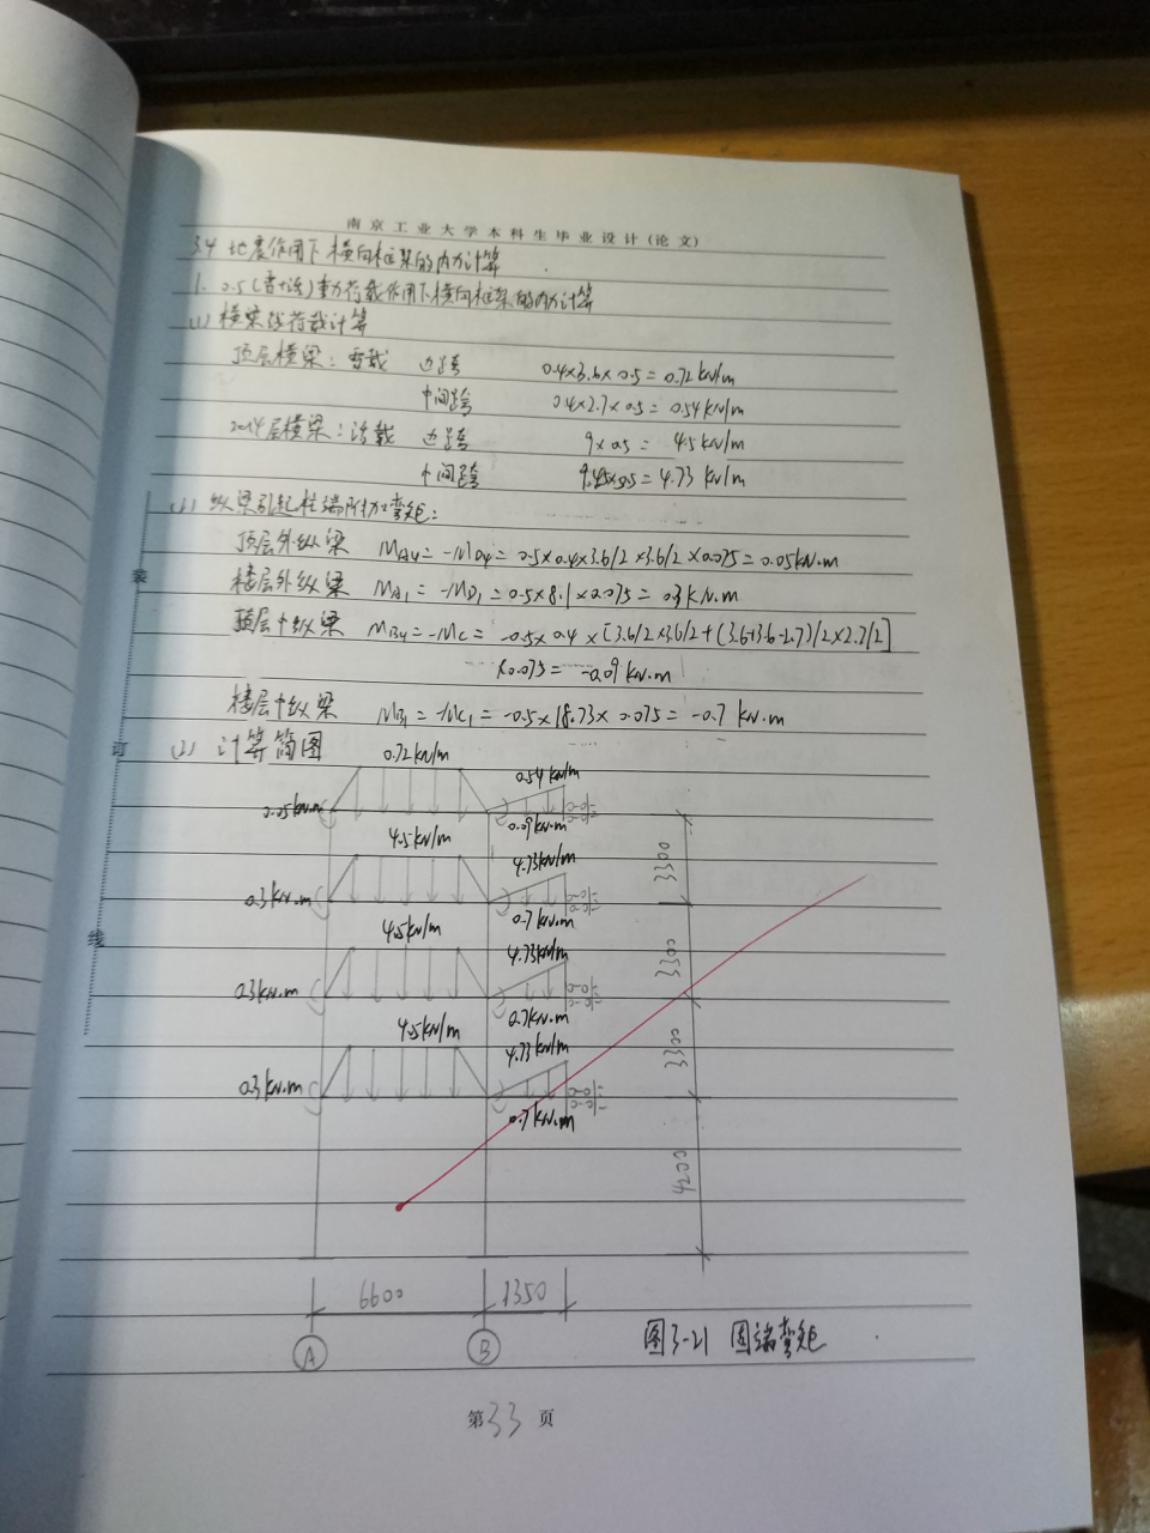 南京工业大学本科生毕业设计(论文)
3.4 地震作用下横向框架的内力计算
1. 0.5(雪+活)重力荷载作用下横向框架的内力计算
(1) 横梁线荷载计算
顶层横梁: 雪载 边跨 0.4×3.6×0.5=0.72kN/m
中间跨 0.4×2.7×0.5=0.54kN/m
2~4层横梁: 活载 边跨 9×0.5= 4.5kN/m
中间跨 9.45×0.5=4.73 kN/m
纵梁引起柱端附加弯矩:
顶层外纵梁 MA4=-MD4=0.5×0.4×3.6/2×3.6/2×0.075=0.05kN.m
楼层外纵梁 MA1=-MD1=0.5×8.1×0.075=0.3kN.m
顶层中纵梁 MB4=-MC=-0.5×0.4×[3.6/2×3.6/2+(3.6+3.6-2.7)/2×2.7/2]
×0.075=-0.09kN.m
楼层中纵梁 MB1=-MC1=-0.5×18.73×0.075=-0.7 kN.m
(2) 计算简图
0.72kN/m
0.54kN/m
0.05kN.m
0.09kN.m
4.5kN/m
4.73kN/m
3300
0.3kN.m
0.7kN.m
4.5kN/m
4.73kN/m
3300
0.3kN.m
0.7kN.m
4.5kN/m
4.73kN/m
3300
0.3kN.m
0.7kN.m
4200
6600 1350
A B
图3-21 固端弯矩
第33页
装
订
线